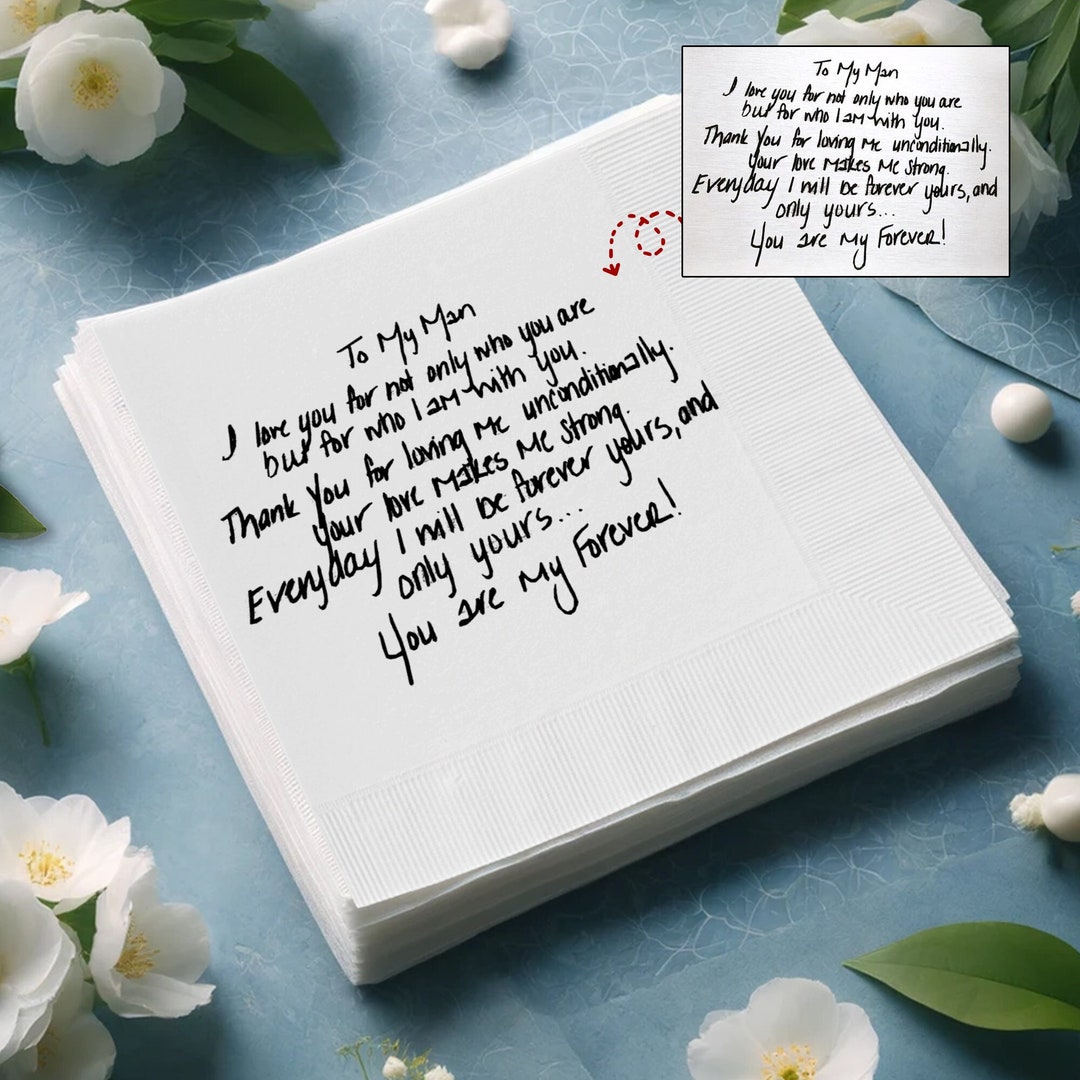 To My Man
I love you for not only who you are
but for who I am with you.
Thank You for loving me unconditionally.
your love makes me strong.
Everyday I will be forever yours, and
only yours...
You are my Forever!
To My Man
I love you for not only who you are
but for who I am with you.
Thank You for loving me unconditionally.
your love makes me strong.
Everyday I will be forever yours, and
only yours...
You are my Forever!